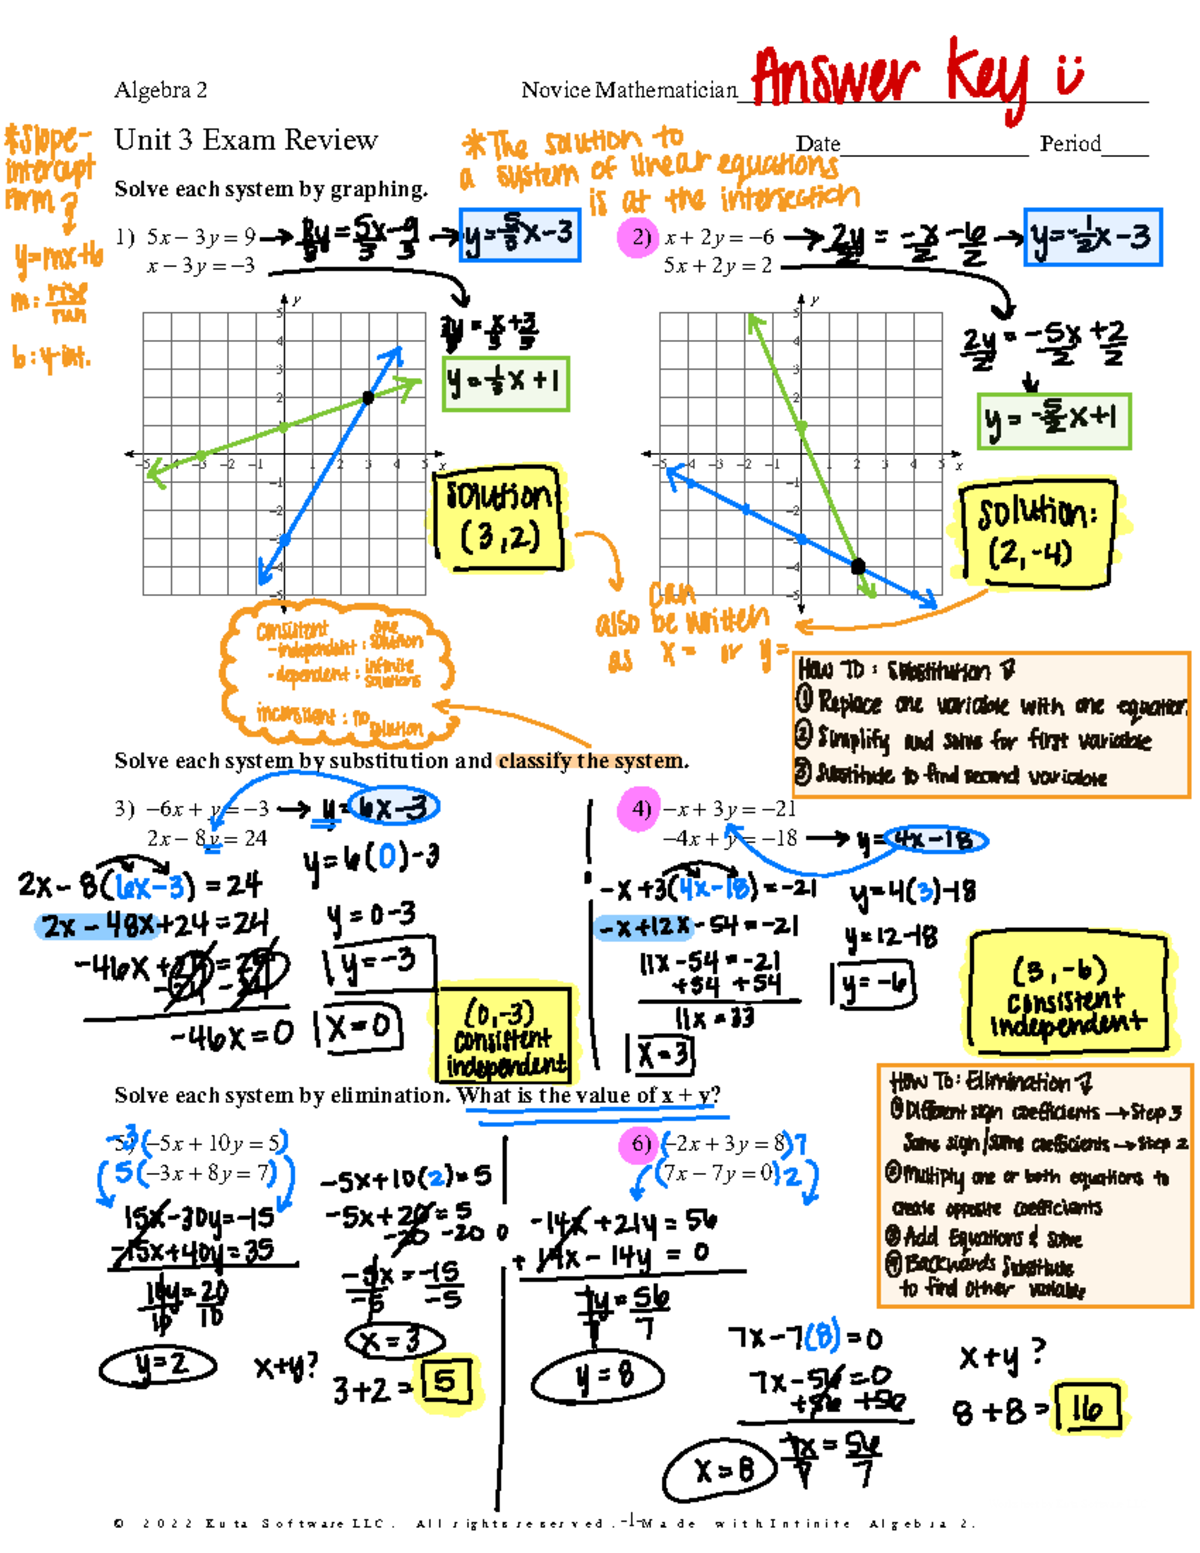 Algebra 2
Novice Mathematician Answer Key
Unit 3 Exam Review
Date Period
*Slope-
intercept
form
y=mx+b
m: rise/run
b: y-int.
*The solution to
a system of linear equations
is at the intersection
Solve each system by graphing.
1) 5x − 3y = 9 → 3y/3 = 5x/3 - 9/3 → y = 5/3x - 3
x − 3y = −3
3y/3 = x/3 + 3/3
y = 1/3x + 1
solution
(3,2)
2) x + 2y = −6 → 2y/2 = -x/2 - 6/2 → y = -1/2x - 3
5x + 2y = 2
2y/2 = -5x/2 + 2/2
y = -5/2x + 1
solution:
(2,-4)
can
also be written
as x = or y =
consistent
- independent: one solution
- dependent: infinite solutions
inconsistent: no solution
How To: Substitution
① Replace one variable with one equation.
② Simplify and solve for first variable
③ Substitute to find second variable
Solve each system by substitution and classify the system.
3) −6x + y = −3 → y = 6x-3
2x − 8y = 24
y = 6(0)-3
2x - 8(6x-3) = 24
2x - 48x + 24 = 24
-46x + 24 = 24
-24 -24
-46x = 0
y = 0-3
y = -3
x = 0
(0,-3)
consistent
independent
4) −x + 3y = −21
−4x + y = −18 → y = 4x-18
-x + 3(4x-18) = -21
-x + 12x - 54 = -21
11x - 54 = -21
+54 +54
11x = 33
x = 3
y = 4(3)-18
y = 12-18
y = -6
(3,-6)
consistent
independent
Solve each system by elimination. What is the value of x + y?
5) -3(−5x + 10y = 5)
5(−3x + 8y = 7)
15x - 30y = -15
-15x + 40y = 35
10y/10 = 20/10
y = 2
-5x + 10(2) = 5
-5x + 20 = 5
-20 -20
-5x/-5 = -15/-5
x = 3
x+y?
3+2 = 5
6) (−2x + 3y = 8)7
(7x − 7y = 0)2
-14x + 21y = 56
+ 14x - 14y = 0
7y/7 = 56/7
y = 8
7x - 7(8) = 0
7x - 56 = 0
+56 +56
7x/7 = 56/7
x = 8
x+y?
8+8 = 16
How To: Elimination
① Different sign coefficients → Step 3
Same sign/same coefficients → Step 2
② Multiply one or both equations to
create opposite coefficients
③ Add Equations & solve
④ Backwards Substitute
to find other variable
© 2022 Kuta Software LLC. All rights reserved. -1- Made with Infinite Algebra 2.